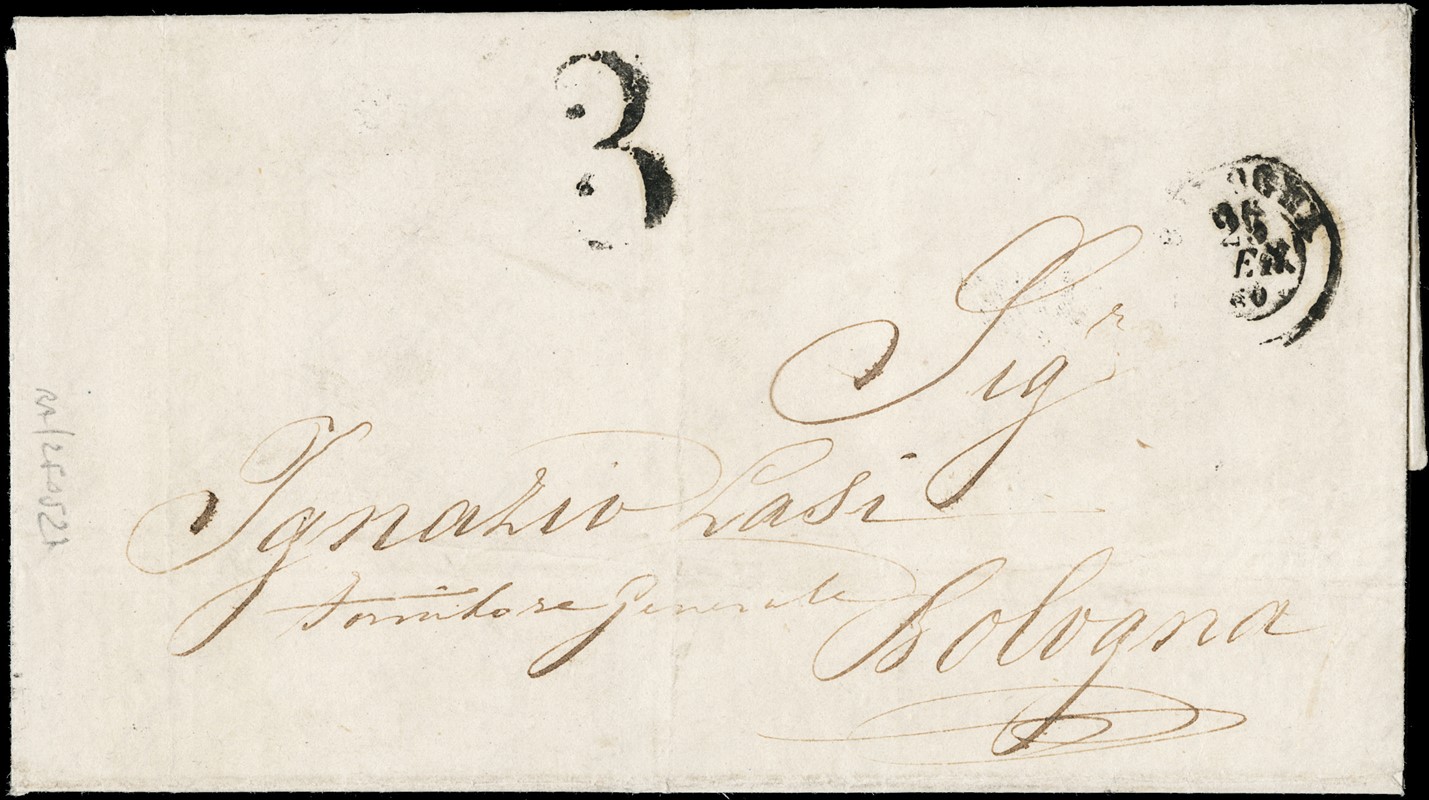 3
26
60
Sigr
Ignazio Lasi
Fornitore Generale
Bologna